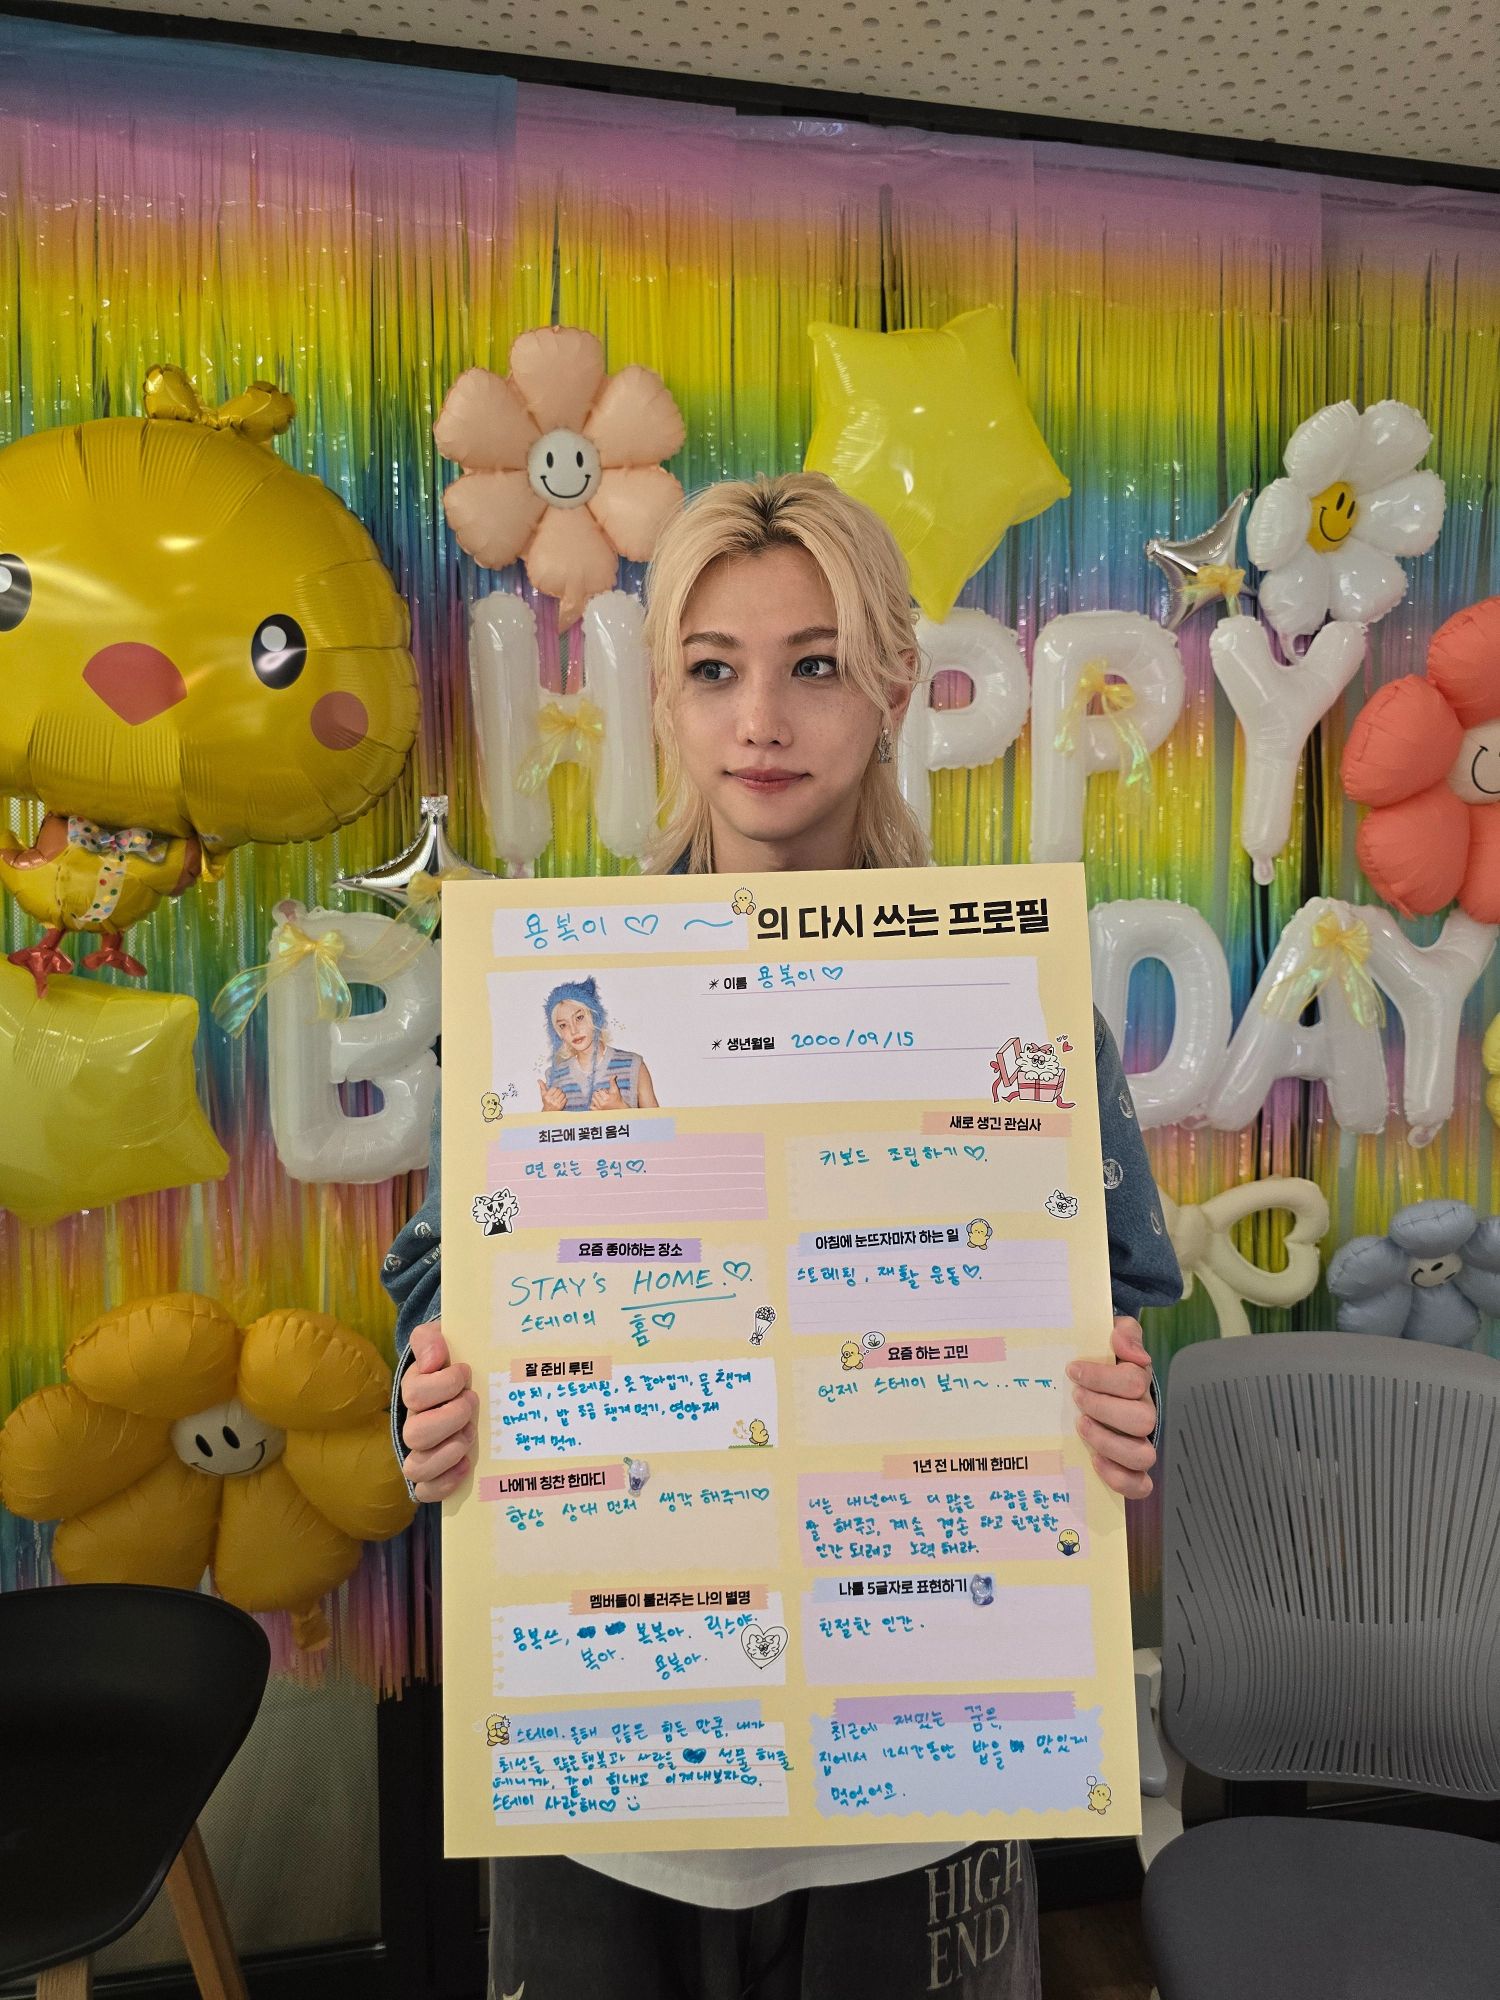 HAPPY
B DAY
용복이♡~의 다시 쓰는 프로필
* 이름 용복이♡
* 생년월일 2000/09/15
최근에 꽂힌 음식
면 있는 음식♡.
새로 생긴 관심사
키보드 조립하기♡.
요즘 좋아하는 장소
STAY's HOME.♡.
스테이의 홈♡
아침에 눈뜨자마자 하는 일
스트레칭, 재활 운동♡.
잘 준비 루틴
양치, 스트레칭, 옷 갈아입기, 물 챙겨
마시기, 밥 조금 챙겨 먹기, 영양제
챙겨 먹기.
요즘 하는 고민
언제 스테이 보기~..ㅠㅠ.
나에게 칭찬 한마디
항상 상대 먼저 생각 해주기♡
1년 전 나에게 한마디
너는 내년에도 더 많은 사람들한테
잘 해주고, 계속 겸손 하고 친절한
인간 되려고 노력 해라.
멤버들이 불러주는 나의 별명
용복쓰, 복복아. 릭스야.
복아. 용복아.
나를 5글자로 표현하기
친절한 인간.
스테이. 올해 많은 힘든 만큼, 내가
최선을 많은 행복과 사랑을 선물 해줄
테니까, 같이 힘내고 이겨내보자♡.
스테이 사랑해♡ :)
최근에 재밌는 꿈은,
집에서 12시간동안 밥을 맛있게
먹었어요.
HIGH
END